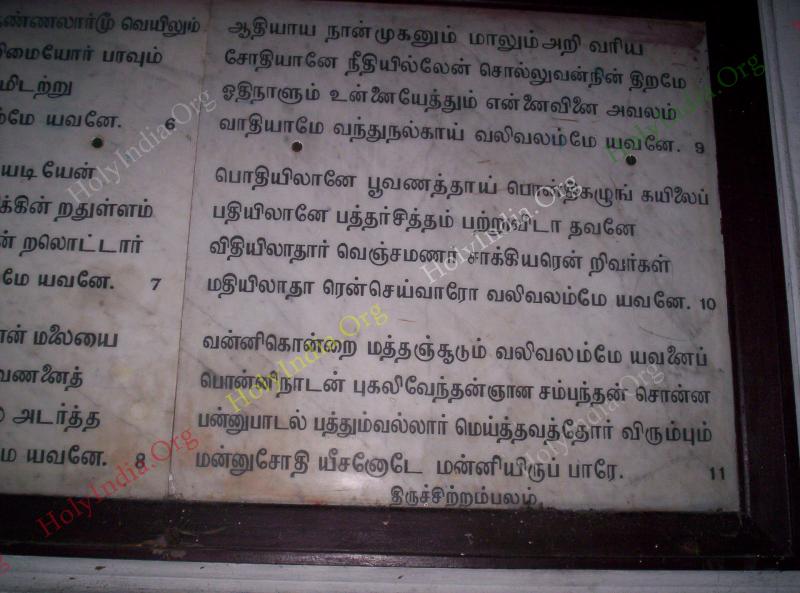 ண்ணலார்மூ வெயிலும்
மையோர் பரவும்
மிடற்று
மே யவனே. 6
யடி யேன்
க்கின் றதுள்ளம்
ன் றலொட்டார்
மே யவனே. 7
ான் மலையை
வணனைத்
அடர்த்த
மே யவனே. 8
ஆதியாய நான்முகனும் மாலும் அறி வரிய
சோதியானே நீதியில்லேன் சொல்லுவன்நின் திறமே
ஓதிநாளும் உன்னையேத்தும் என்னைவினை அவலம்
வாதியாமே வந்துநல்காய் வலிவலம்மே யவனே. 9
பொதியிலானே பூவணத்தாய் பொன்திகழுங் கயிலைப்
பதியிலானே பத்தர்சித்தம் பற்றுவிடா தவனே
விதியிலாதார் வெஞ்சமணர் சாக்கியரென் றிவர்கள்
மதியிலாதா ரென்செய்வாரோ வலிவலம்மே யவனே. 10
வன்னிகொன்றை மத்தஞ்சூடும் வலிவலம்மே யவனைப்
பொன்னிநாடன் புகலிவேந்தன்ஞான சம்பந்தன் சொன்ன
பன்னுபாடல் பத்தும்வல்லார் மெய்த்தவத்தோர் விரும்பும்
மன்னுசோதி யீசனோடே மன்னியிருப் பாரே. 11
திருச்சிற்றம்பலம்
HolyIndia.Org
HolyIndia.Org
HolyIndia.Org
HolyIndia.Org
HolyIndia.Org
HolyIndia.Org